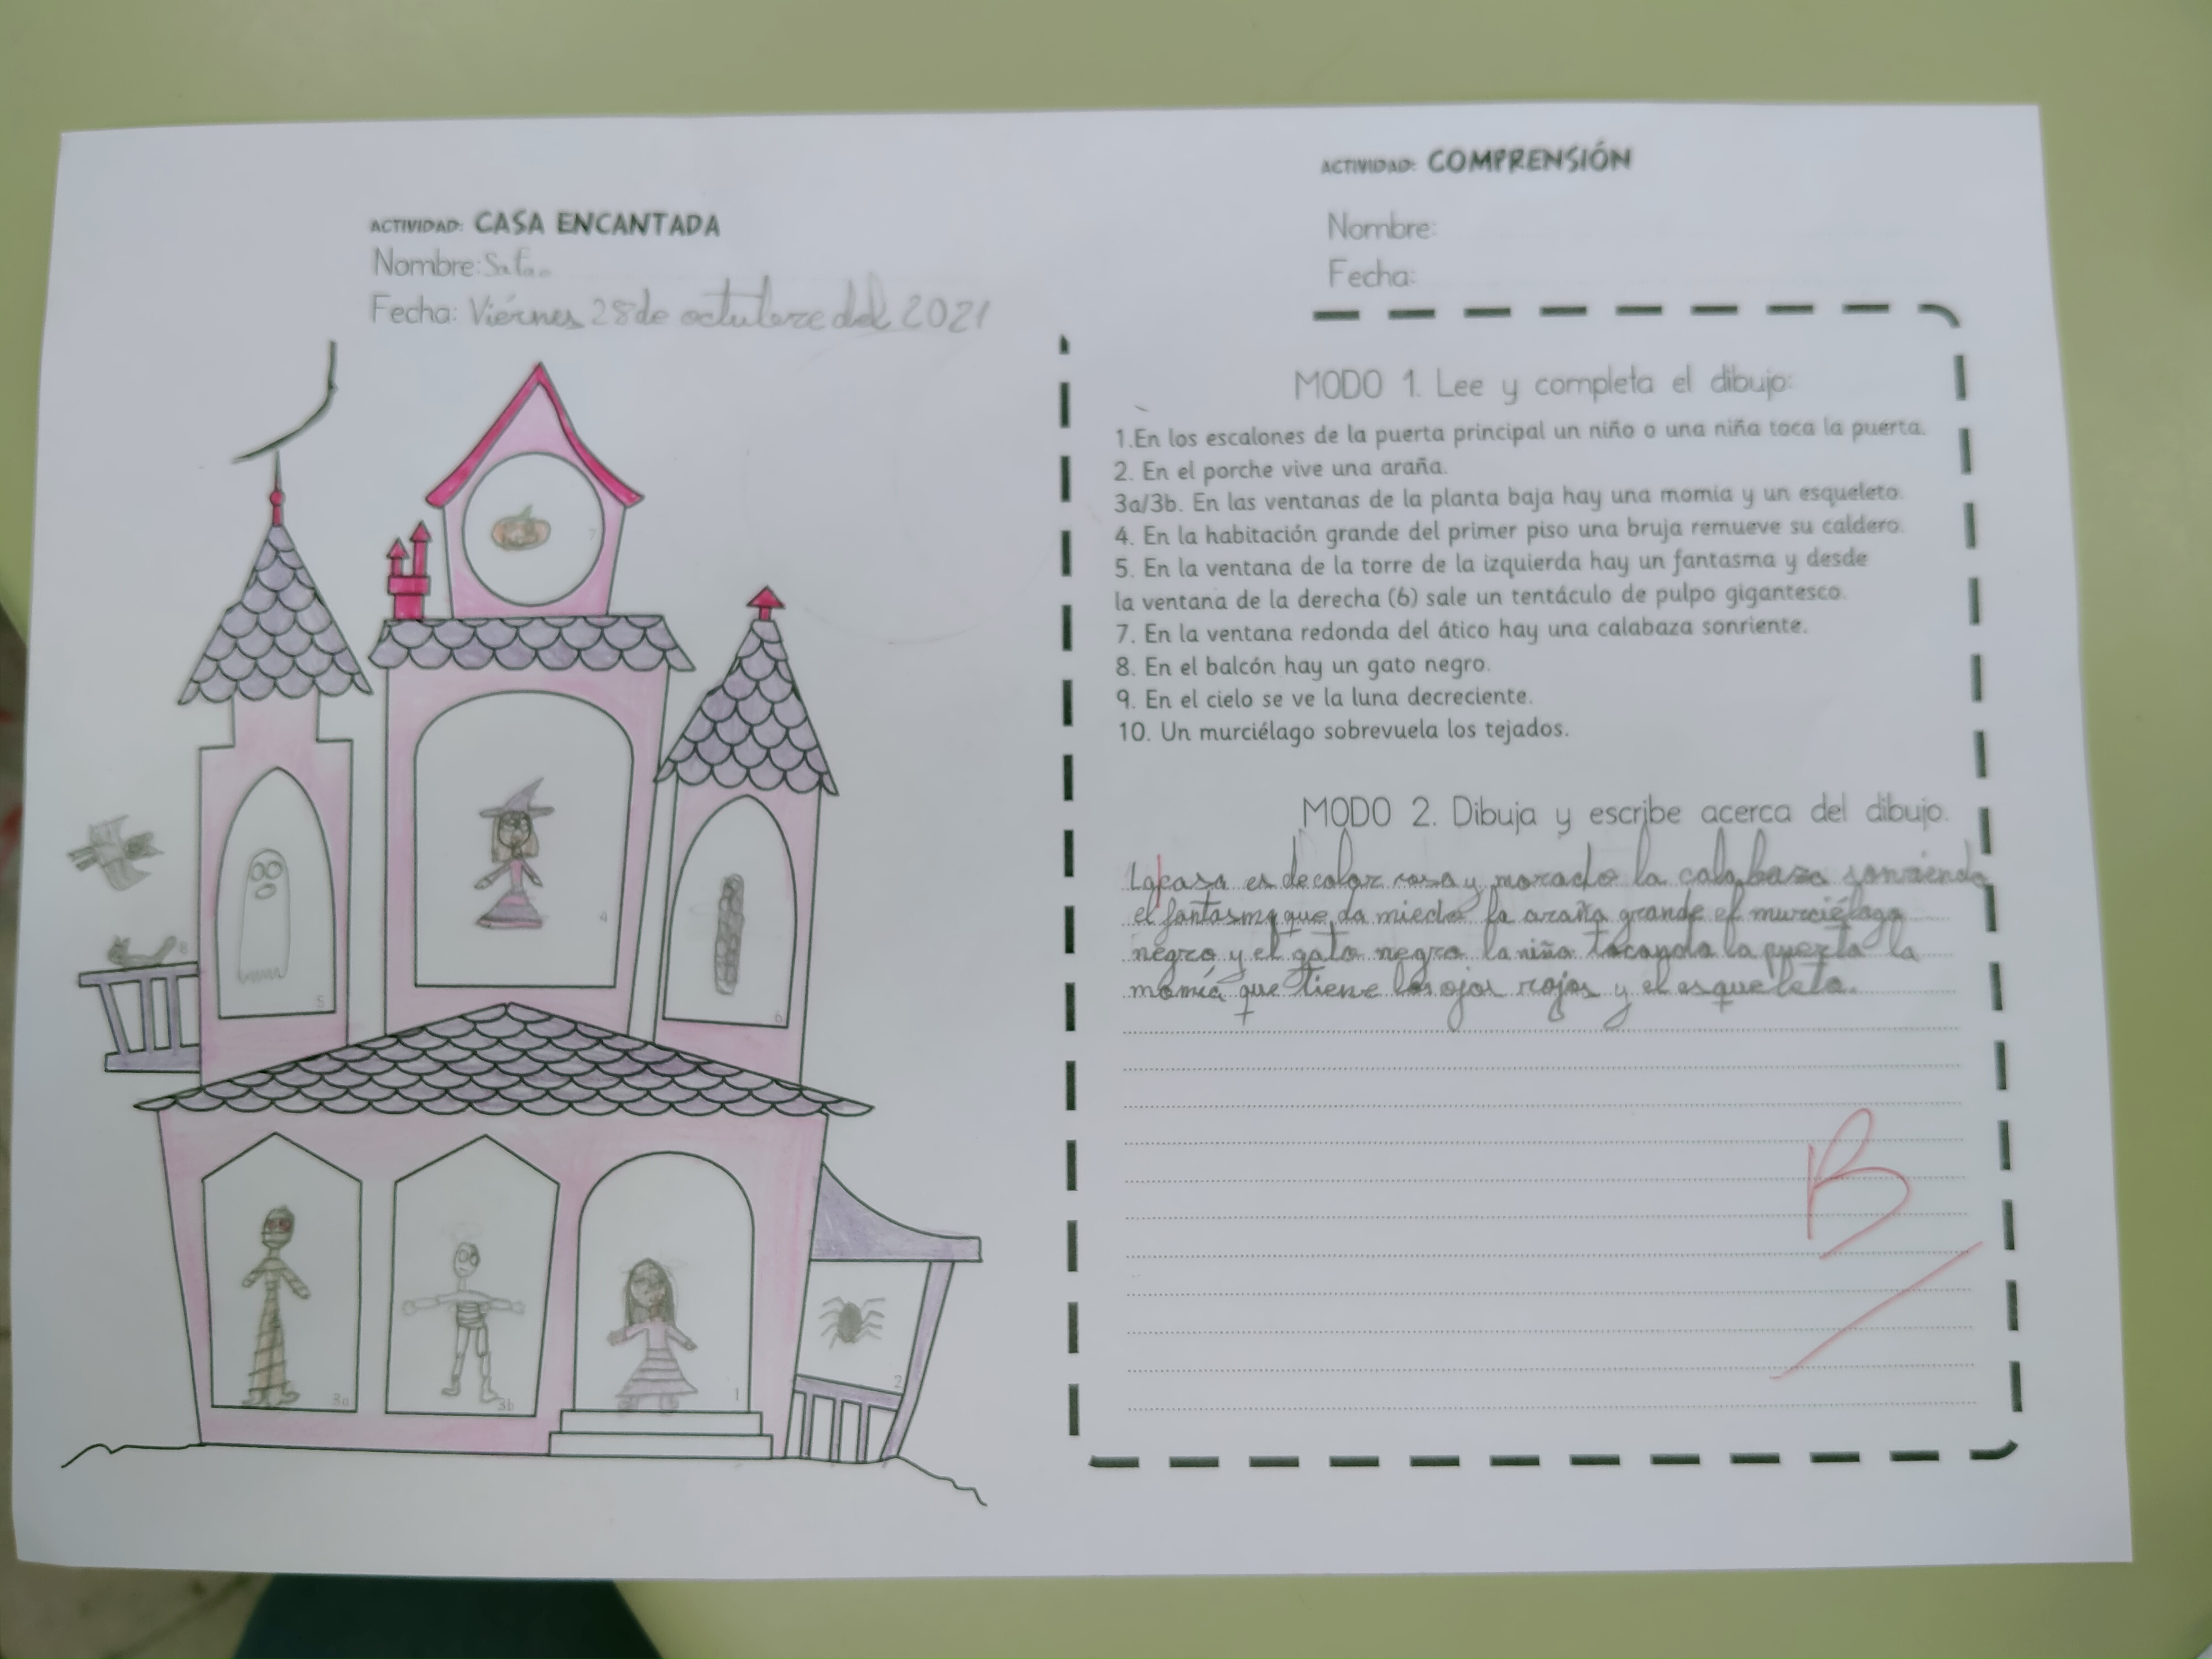 ACTIVIDAD: CASA ENCANTADA
Nombre:
Fecha: Viérnes 28 de octubre del 2021
7
4
5
6
8
3a
3b
1
2
ACTIVIDAD: COMPRENSIÓN
Nombre:
Fecha:
MODO 1. Lee y completa el dibujo:
1.En los escalones de la puerta principal un niño o una niña toca la puerta.
2. En el porche vive una araña.
3a/3b. En las ventanas de la planta baja hay una momia y un esqueleto.
4. En la habitación grande del primer piso una bruja remueve su caldero.
5. En la ventana de la torre de la izquierda hay un fantasma y desde
la ventana de la derecha (6) sale un tentáculo de pulpo gigantesco.
7. En la ventana redonda del ático hay una calabaza sonriente.
8. En el balcón hay un gato negro.
9. En el cielo se ve la luna decreciente.
10. Un murciélago sobrevuela los tejados.
MODO 2. Dibuja y escribe acerca del dibujo.
La casa es de color rosa y morado la calabaza sonriendo
el fantasma que da miedo la araña grande el murciélago
negro y el gato negro la niña tocando la puerta la
momia que tiene los ojos rojos y el esqueleto.
B